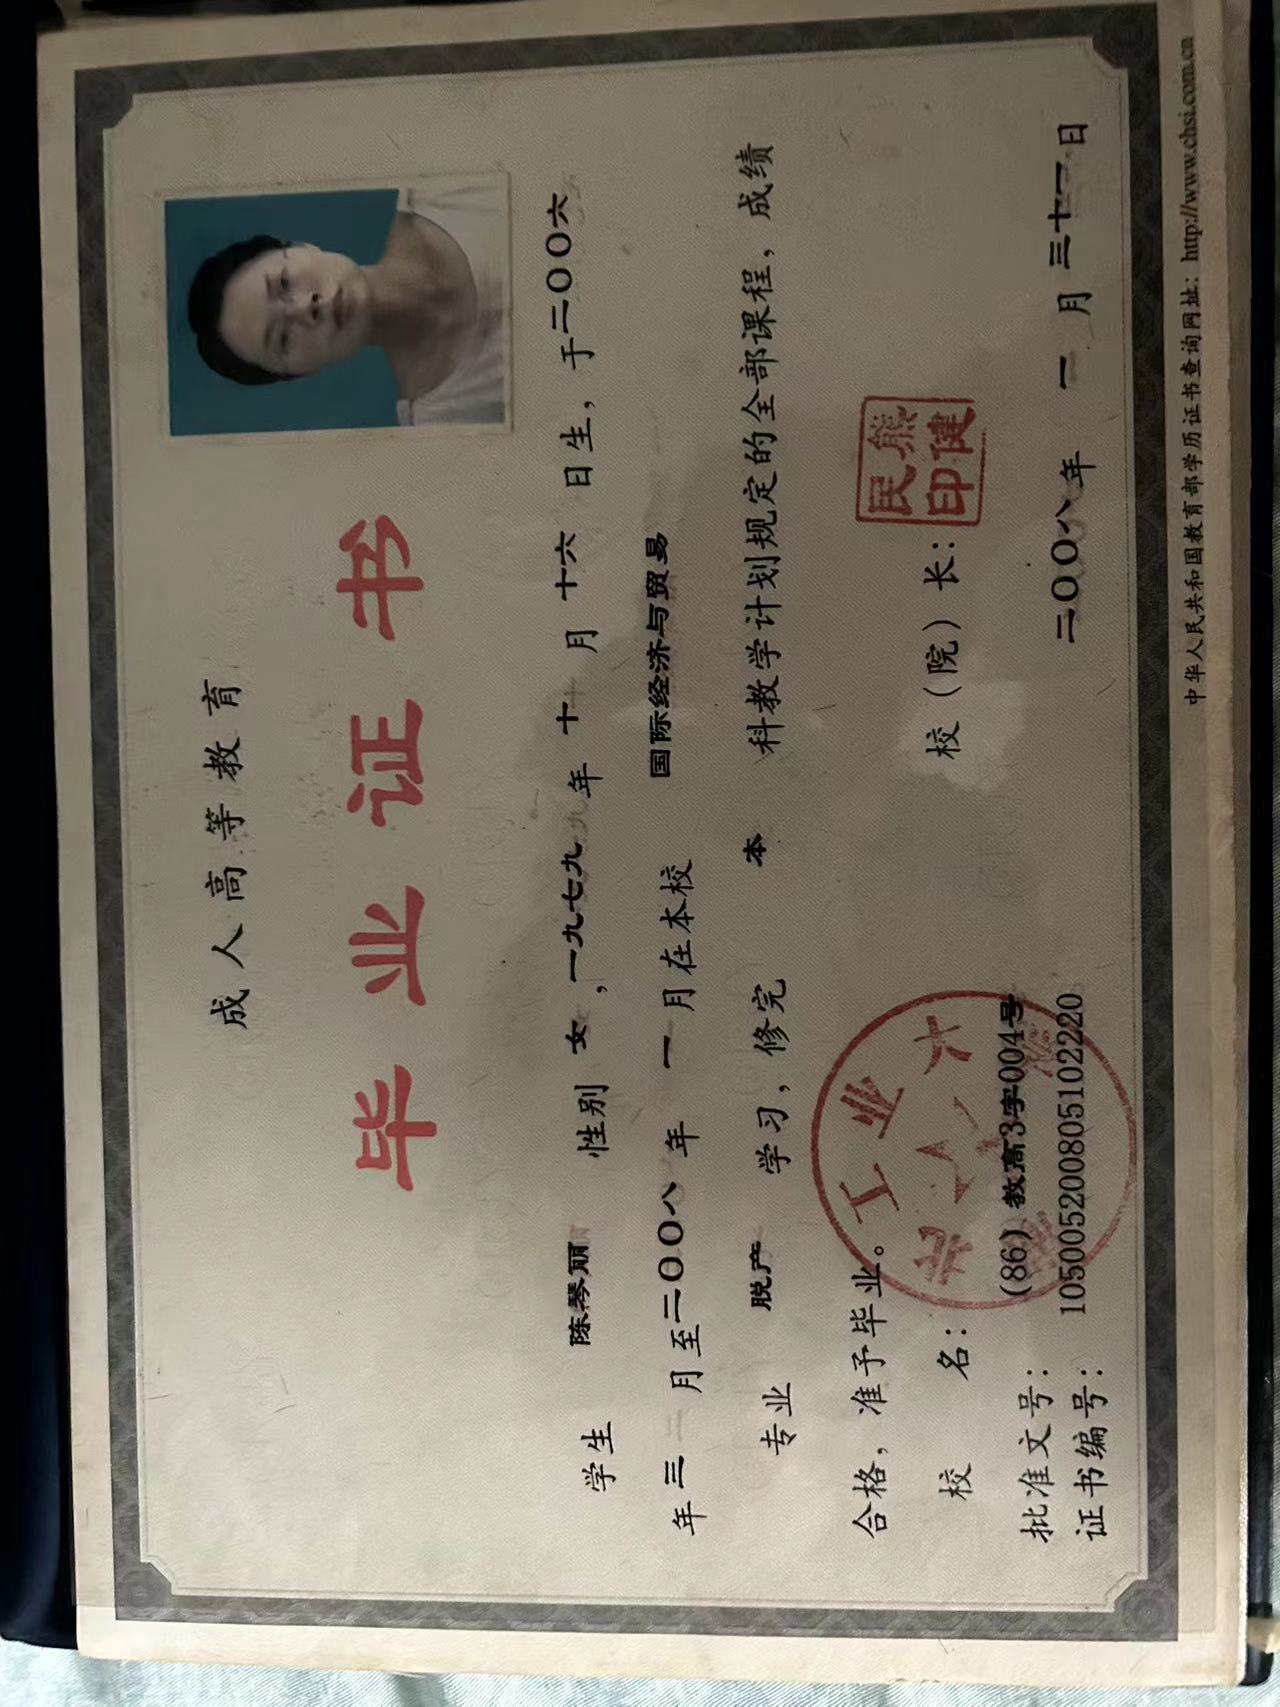 成人高等教育
毕业证书
学生 陈琴丽 性别 女,一九七九年 十 月 十六 日生，于二〇〇六
年 三 月至二〇〇八 年 一 月在本校 国际经济与贸易
专业 脱产 学习，修完 本 科教学计划规定的全部课程，成绩
合格，准予毕业。
校 名： 校（院）长：
熊健民印
批准文号： (86) 教高3字004号
证书编号： 105005200805102220
二〇〇八年 一 月 三十一日
中华人民共和国教育部学历证书查询网址： http://www.chsi.com.cn